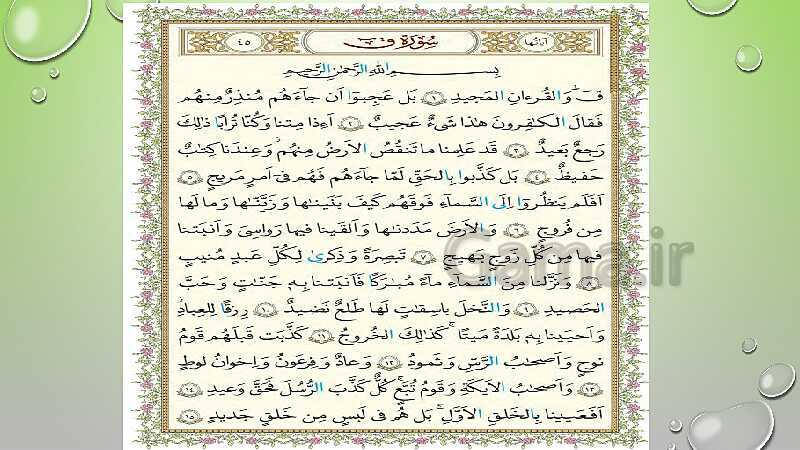 آیاتُها سُورَة ق ٤٥
بِسمِ اللهِ الرَّحمٰنِ الرَّحيمِ
قٓ ۚ وَالقُرءانِ المَجيدِ ﴿١﴾ بَل عَجِبوا اَن جاءَهُم مُنذِرٌ مِنهُم
فَقالَ الكافِرونَ هٰذا شَیءٌ عَجيبٌ ﴿٢﴾ اَءِذا مِتنا وَكُنّا تُرابًا ذٰلِكَ
رَجعٌ بَعيدٌ ﴿٣﴾ قَد عَلِمنا ما تَنقُصُ الاَرضُ مِنهُم وَعِندَنا كِتابٌ
حَفيظٌ ﴿٤﴾ بَل كَذَّبوا بِالحَقِّ لَمّا جاءَهُم فَهُم فی اَمرٍ مَريجٍ ﴿٥﴾
اَفَلَم يَنظُروا اِلَی السَّماءِ فَوقَهُم كَيفَ بَنَيناها وَزَيَّنّاها وَما لَها
مِن فُروجٍ ﴿٦﴾ وَالاَرضَ مَدَدناها وَاَلقَينا فيها رَواسِیَ وَاَنبَتنا
فيها مِن كُلِّ زَوجٍ بَهيجٍ ﴿٧﴾ تَبصِرَةً وَذِكریٰ لِكُلِّ عَبدٍ مُنيبٍ
﴿٨﴾ وَنَزَّلنا مِنَ السَّماءِ ماءً مُبارَكًا فَاَنبَتنا بِه جَنّاتٍ وَحَبَّ
الحَصيدِ ﴿٩﴾ وَالنَّخلَ باسِقاتٍ لَها طَلعٌ نَضيدٌ ﴿١٠﴾ رِزقًا لِلعِبادِ
وَاَحيَينا بِه بَلدَةً مَيتًا ۚ كَذٰلِكَ الخُروجُ ﴿١١﴾ كَذَّبَت قَبلَهُم قَومُ
نوحٍ وَاَصحابُ الرَّسِّ وَثَمودُ ﴿١٢﴾ وَعادٌ وَفِرعَونُ وَاِخوانُ لوطٍ
﴿١٣﴾ وَاَصحابُ الاَيكَةِ وَقَومُ تُبَّعٍ ۚ كُلٌّ كَذَّبَ الرُّسُلَ فَحَقَّ وَعيدِ ﴿١٤﴾
اَفَعَيينا بِالخَلقِ الاَوَّلِ ۚ بَل هُم فی لَبسٍ مِن خَلقٍ جَديدٍ ﴿١٥﴾
Gama.ir